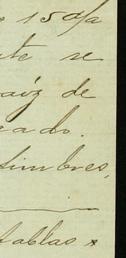 15 d/a
te se
raíz de
cado.
timbres,
tablas x